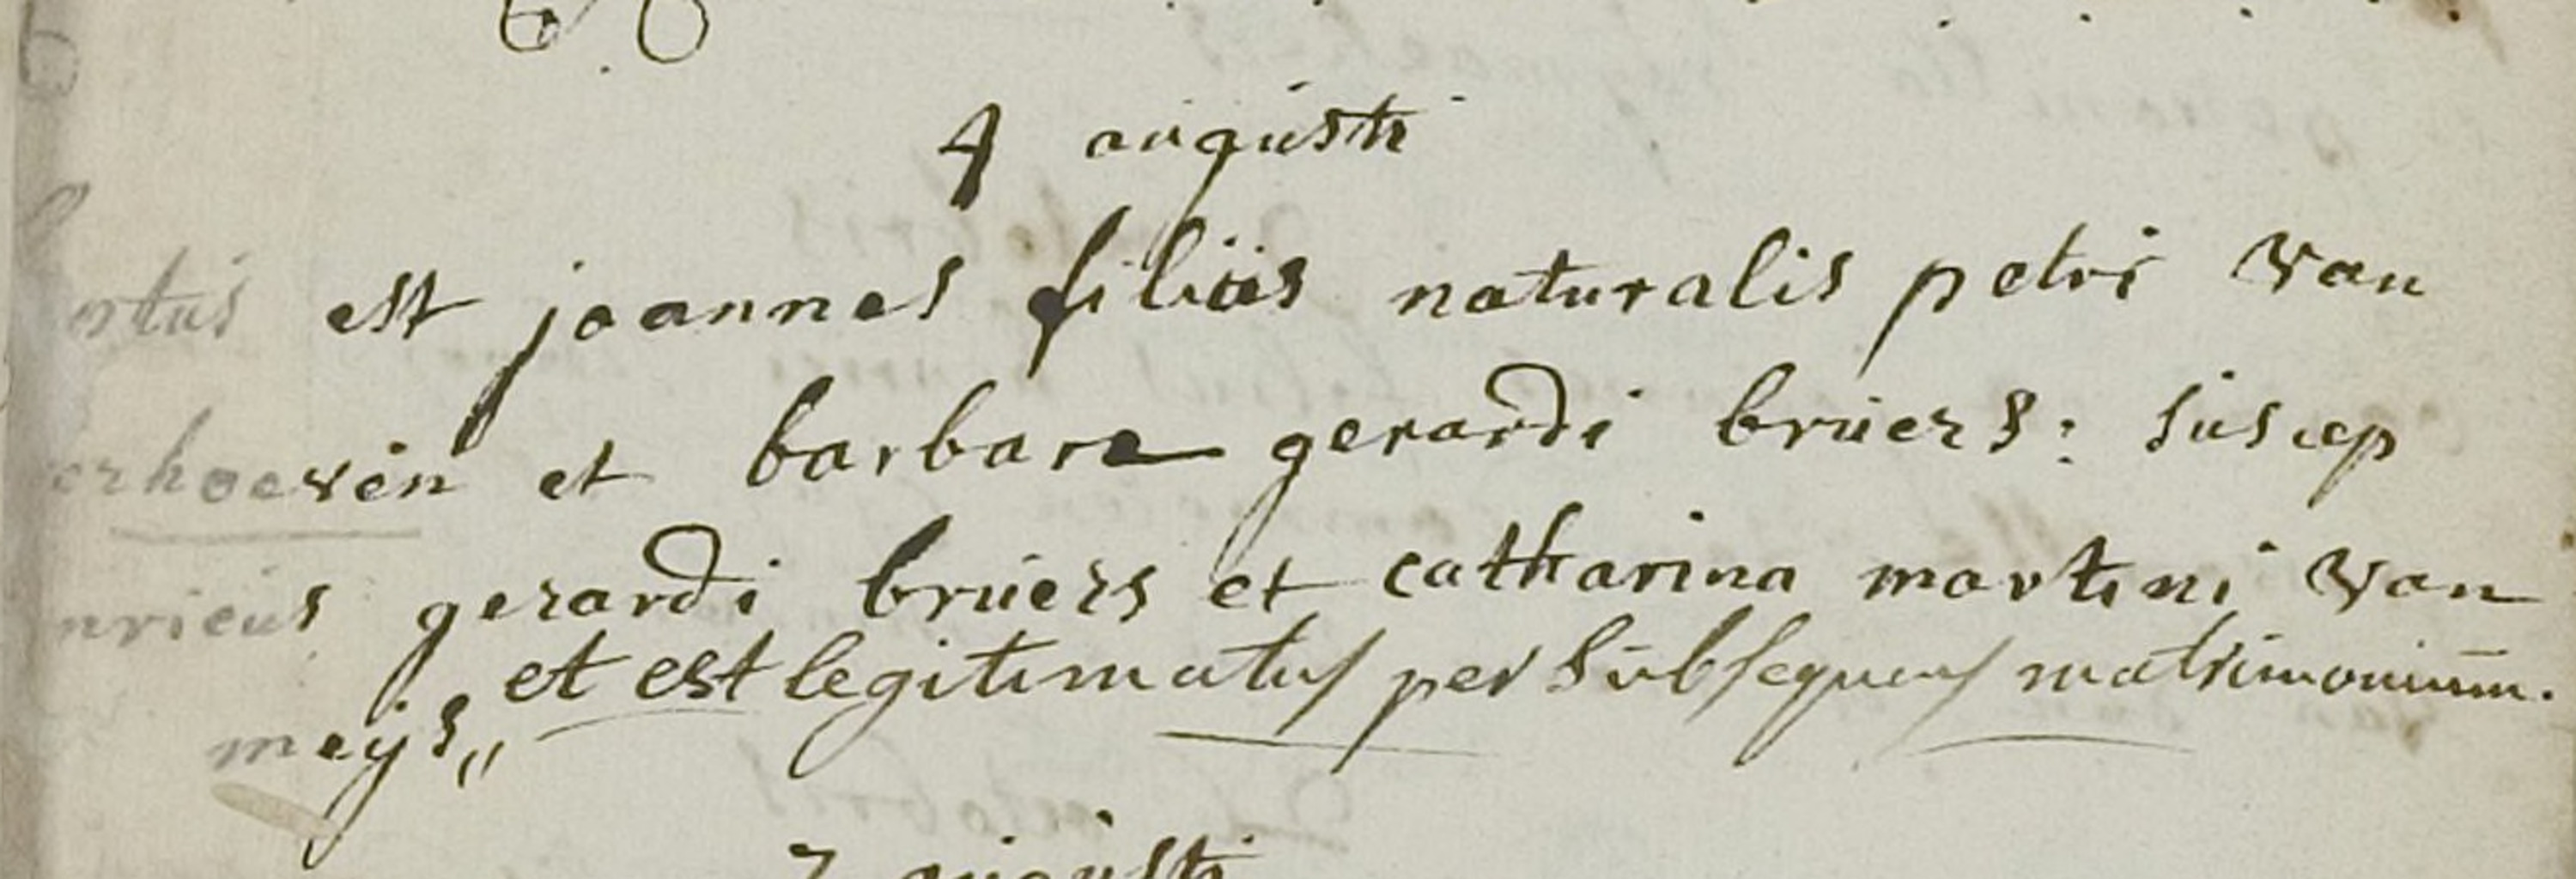 4 augusti
ortus est joannes filius naturalis petri van
erhoeven et barbara gerardi bruers: suscep
nricus gerardi bruers et catharina martini van
et est legitimatus per subsequens matrimonium.
meijs,,
7 augusti